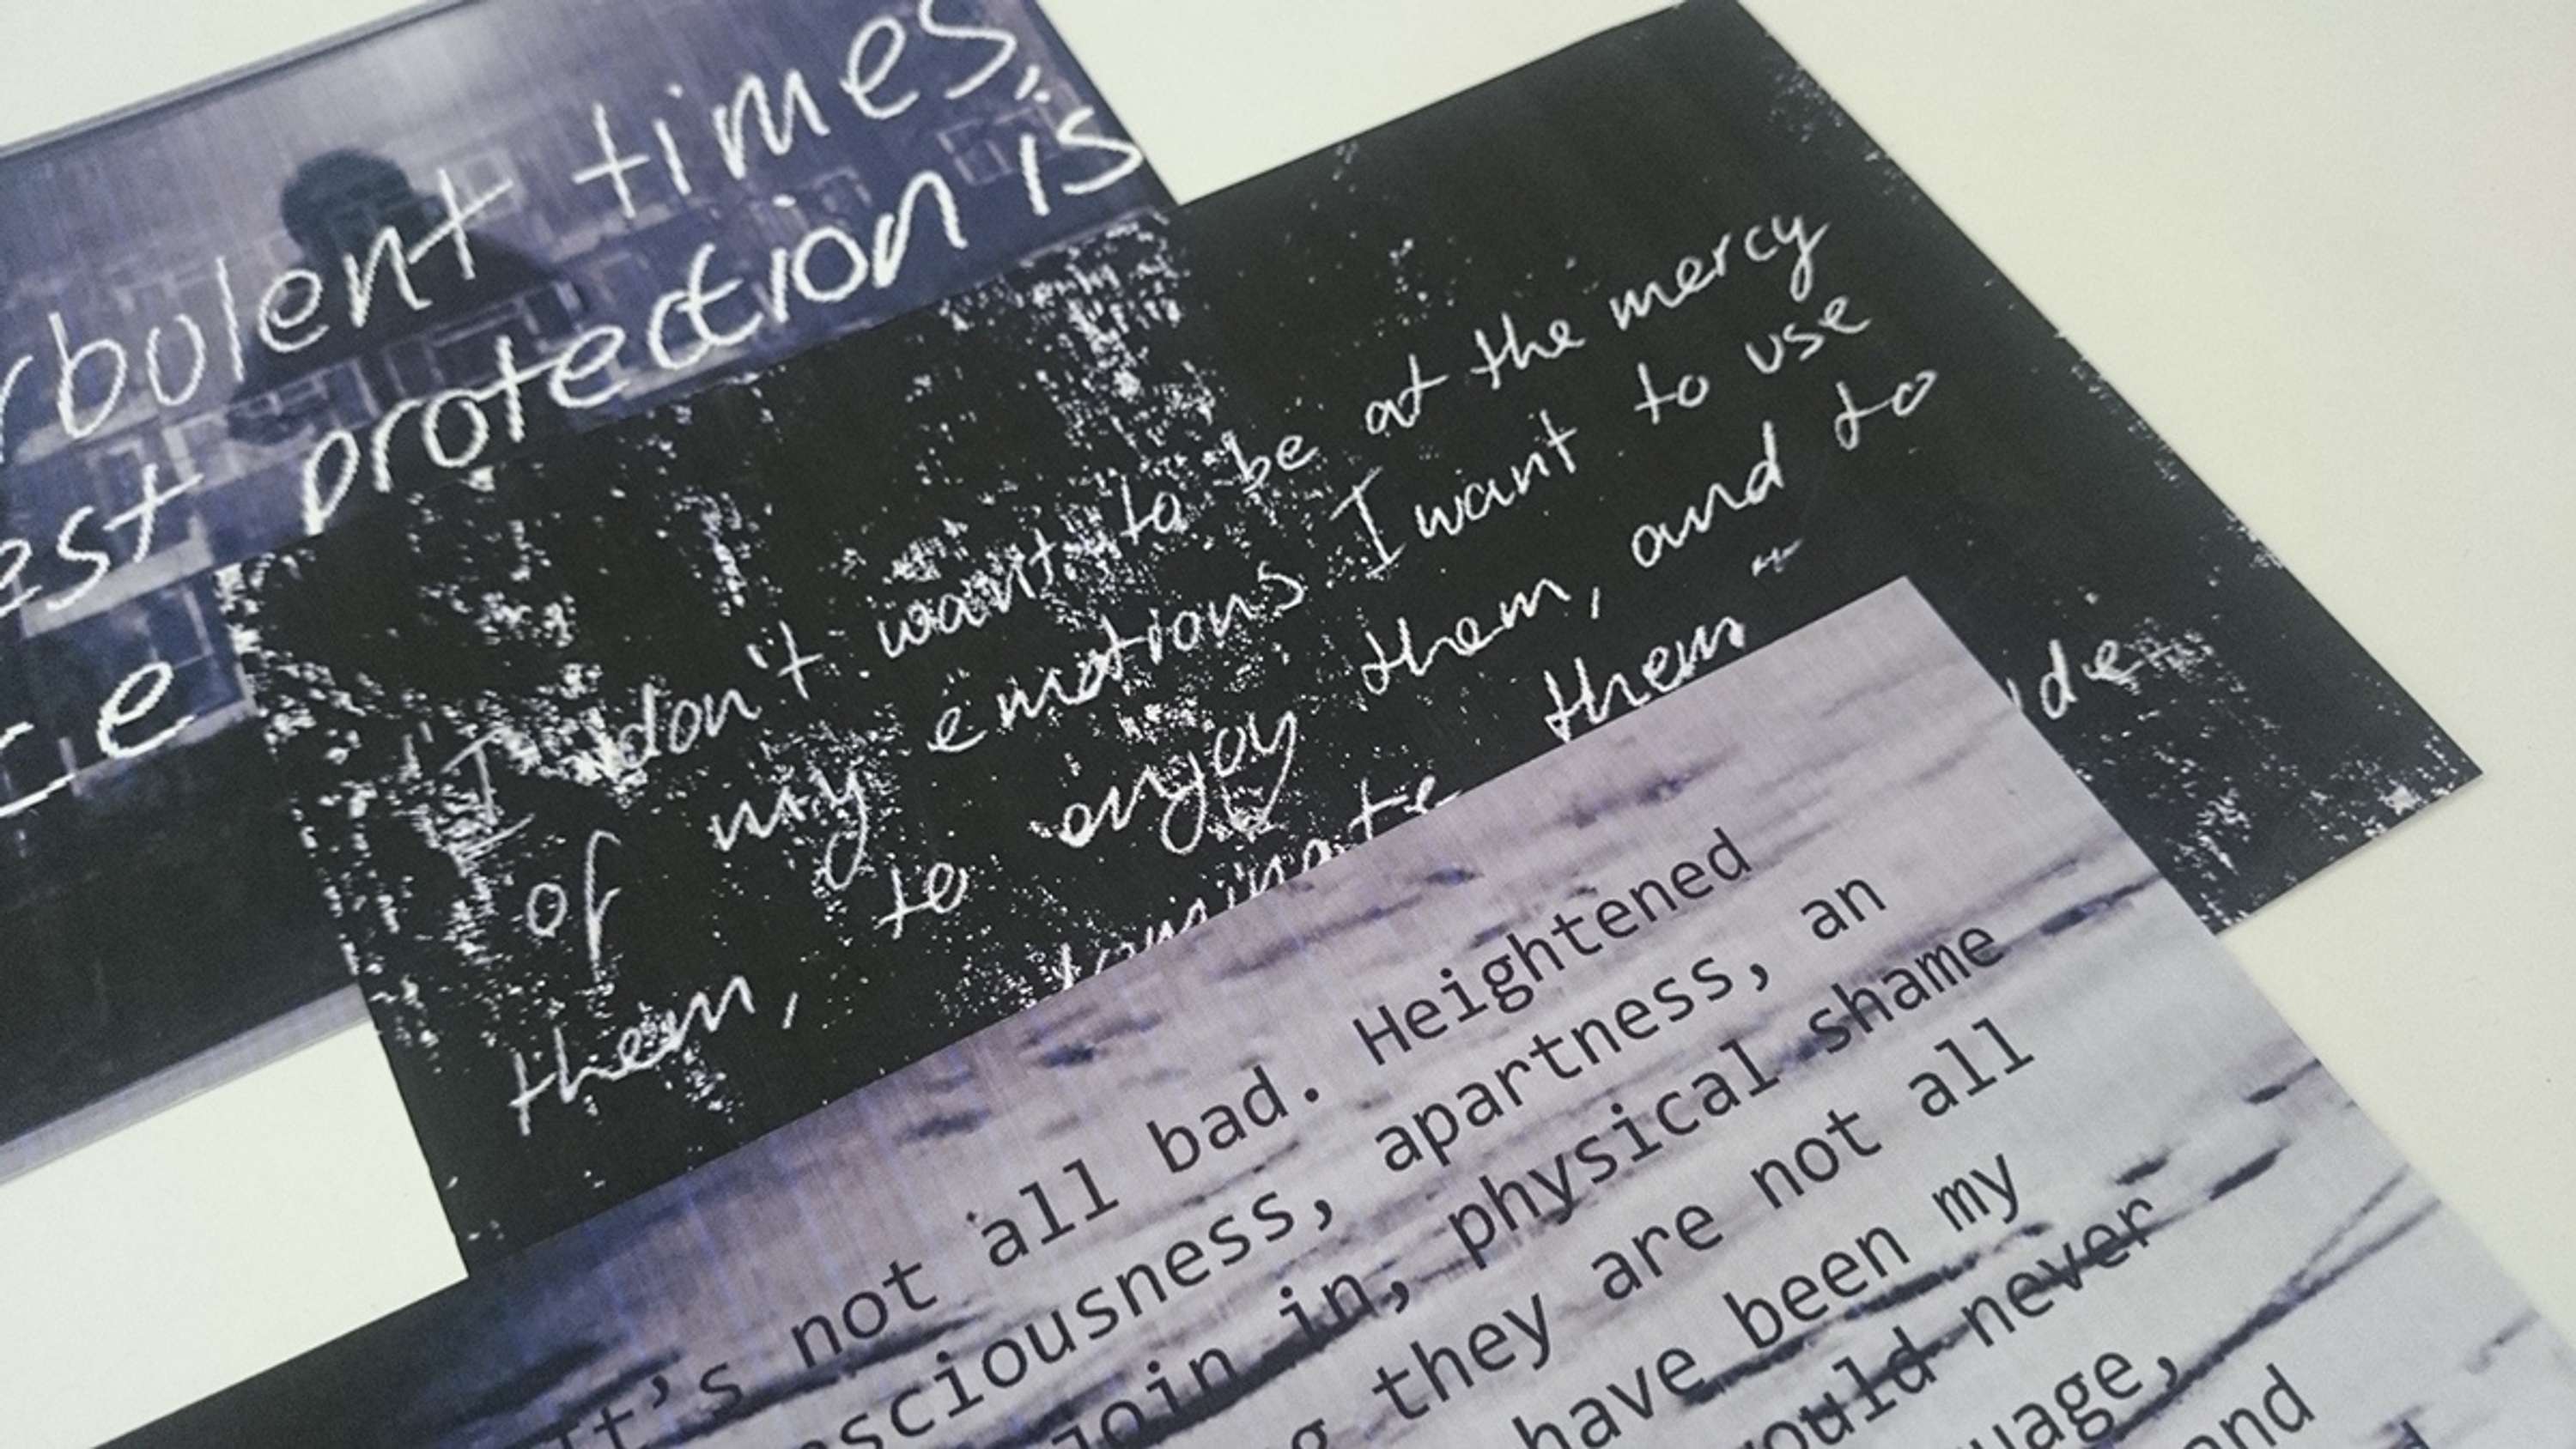 rbulent times,
est protection is
ce
I don't want to be at the mercy
of my emotions I want to use
them, to enjoy them, and to
dominate them
de
It's not all bad. Heightened
sciousness, apartness, an
join in, physical shame
g they are not all
have been my
would never
uage,
and